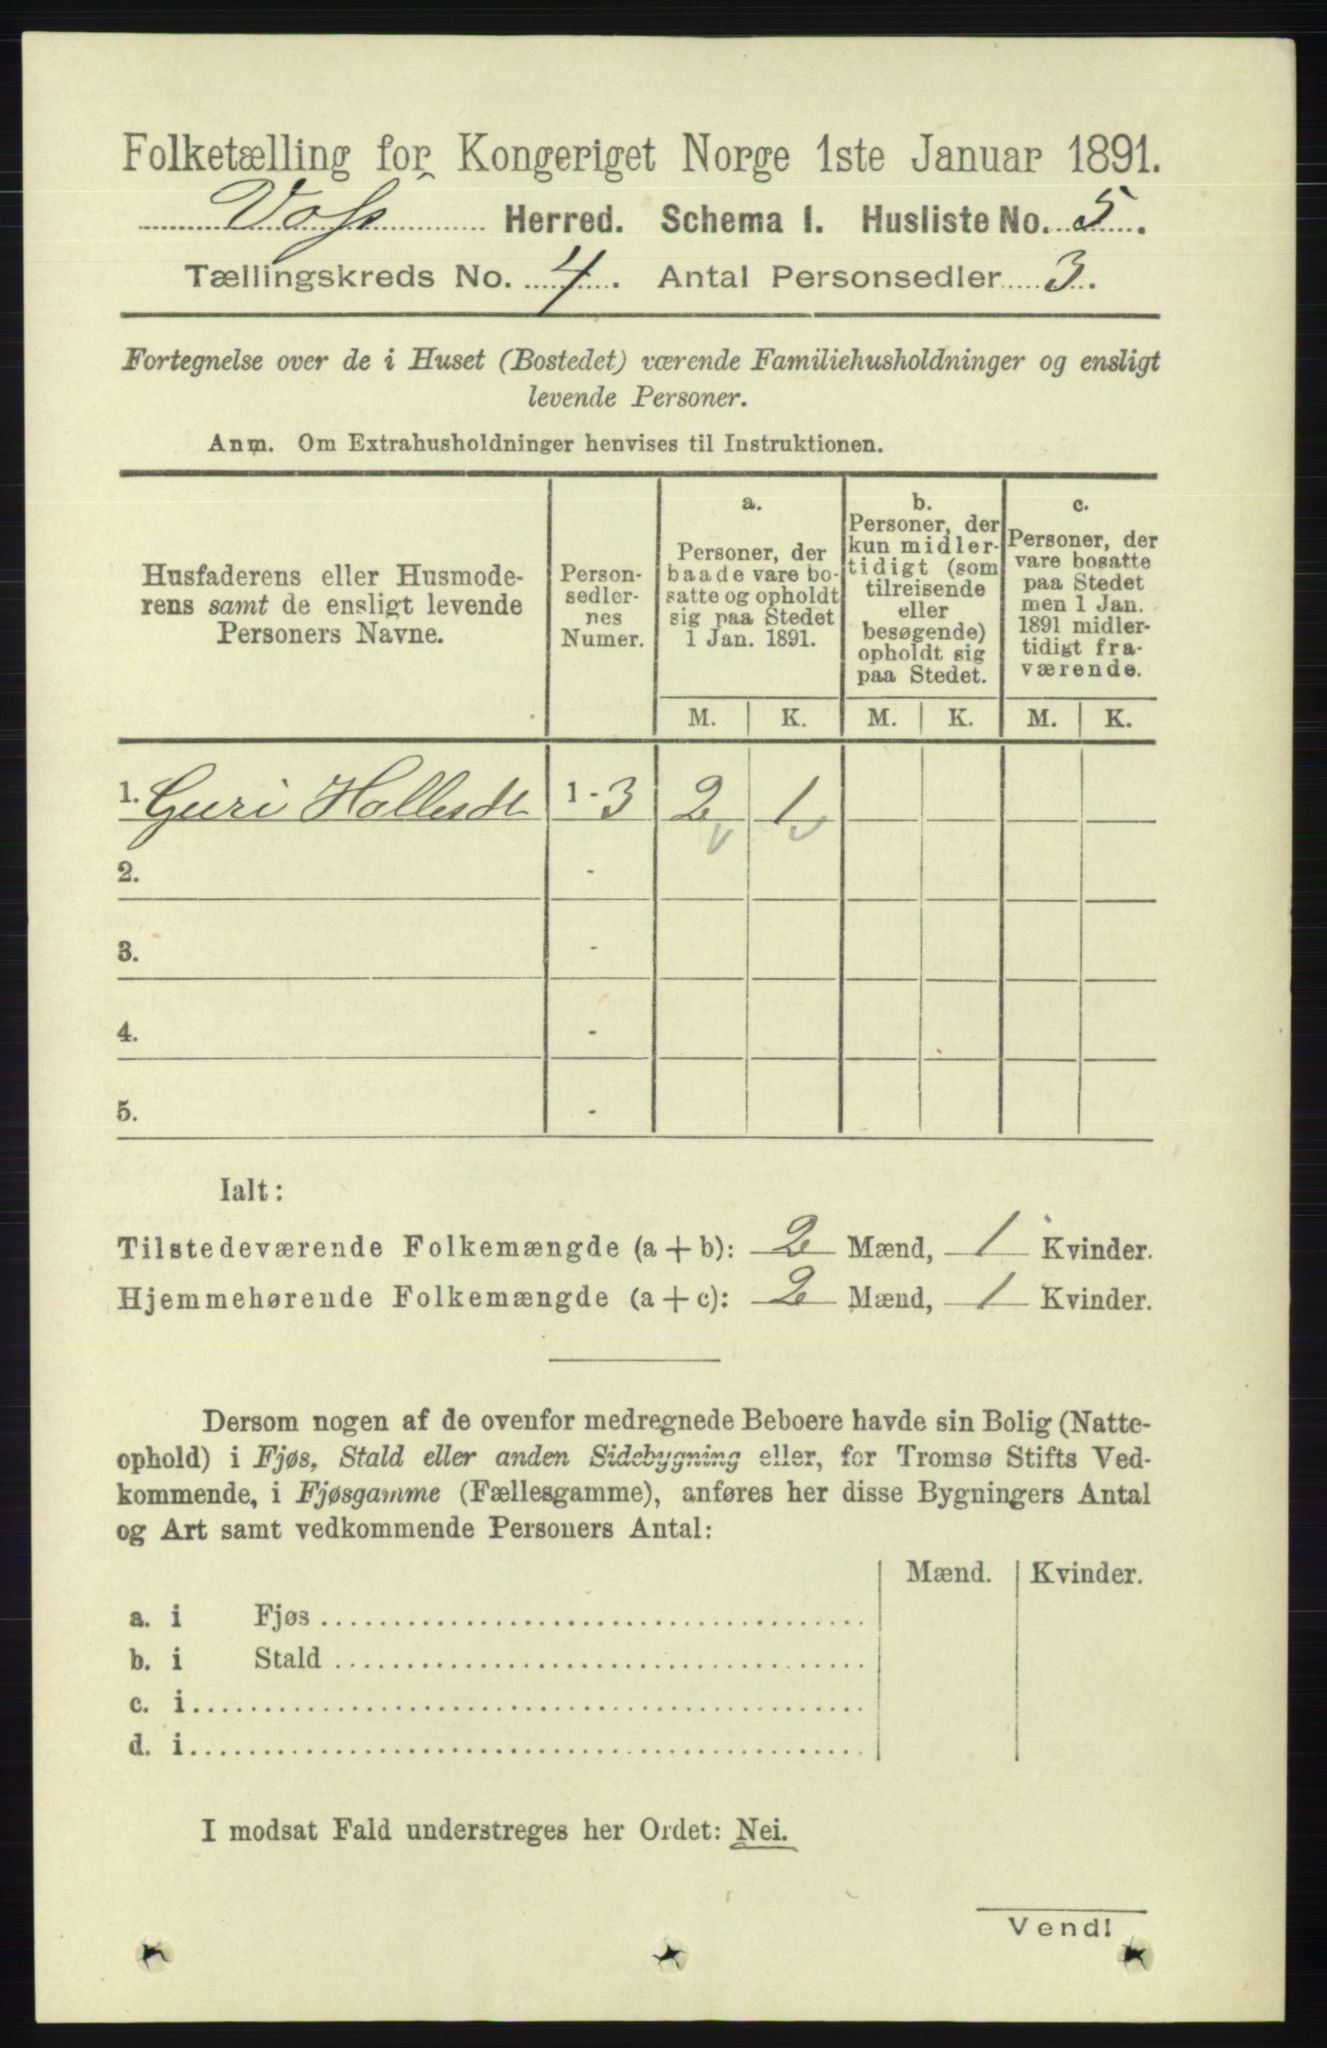 Folketælling for Kongeriget Norge 1ste Januar 1891.
Voss Herred. Schema 1. Husliste No. 5.
Tællingskreds No. 4. Antal Personsedler 3.
Fortegnelse over de i Huset (Bostedet) værende Familiehusholdninger og ensligt
levende Personer.
Anm. Om Extrahusholdninger henvises til Instruktionen.
Husfaderens eller Husmode-
rens samt de ensligt levende
Personers Navne.
Person-
sedler-
nes
Numer.
a.
Personer, der
baade vare bo-
satte og opholdt
sig paa Stedet
1 Jan. 1891.
b.
Personer, der
kun midler-
tidigt (som
tilreisende
eller
besøgende)
opholdt sig
paa Stedet.
c.
Personer, der
vare bosatte
paa Stedet
men 1 Jan.
1891 midler-
tidigt fra-
værende.
M. K. M. K. M. K.
1. Guri 1 - 3 2 1
2. -
3. -
4. -
5. -
Ialt:
Tilstedeværende Folkemængde (a + b): 2 Mænd, 1 Kvinder.
Hjemmehørende Folkemængde (a + c): 2 Mænd, 1 Kvinder.
Dersom nogen af de ovenfor medregnede Beboere havde sin Bolig (Natte-
ophold) i Fjøs, Stald eller anden Sidebygning eller, for Tromsø Stifts Ved-
kommende, i Fjøsgamme (Fællesgamme), anføres her disse Bygningers Antal
og Art samt vedkommende Personers Antal:
Mænd. Kvinder.
a. i Fjøs
b. i Stald
c. i
d. i
I modsat Fald understreges her Ordet: Nei.
Vend!